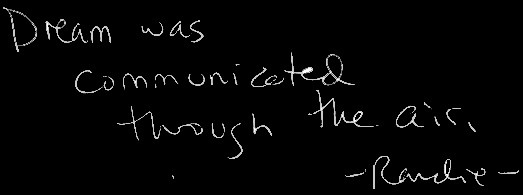 Dream was
communicated
through the air.
-Randie-